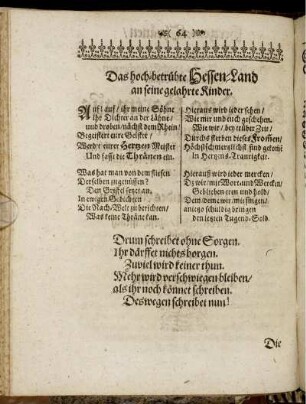 64
Das hoch-betrübte Hessen-Land
an seine gelahrte Kinder.
Auf! auf/ ihr meine Söhne
Ihr Dichter an der Lähne/
und droben/nächst dem Rhein/
Begeistert eure Geister/
Werdt eurer Hertzen Meister
Und fasst die Thränen ein.
Was hat man von dem fliessen
Derselben zu geniessen?
Den Griffel setzet an,
In ewigen Gedichten
Die Nach-Welt zu berichten/
Was keine Thräne kan.
Hieraus wird jeder sehen/
Wie mir und euch geschehen.
Wie wir/ bey trüber Zeit/
Durchs sterben dieses Frommen/
Höchstschmertzlichst sind gekommen
In Hertzens-Traurigkeit.
Hieraus wird jeder mercken/
Dz wir/ mit Wort und Wercken/
Geblieben treu und hold/
Dem dem wir müssen/
anietzo schuldig bringen
den letzten Tugend-Sold.
Drum schreibet ohne Sorgen.
Ihr därffet nichts borgen.
Zuviel wird keiner thun.
Mehr wird verschwiegen bleiben/
als ihr noch könnet schreiben.
Deswegen schreibet nun!
Die